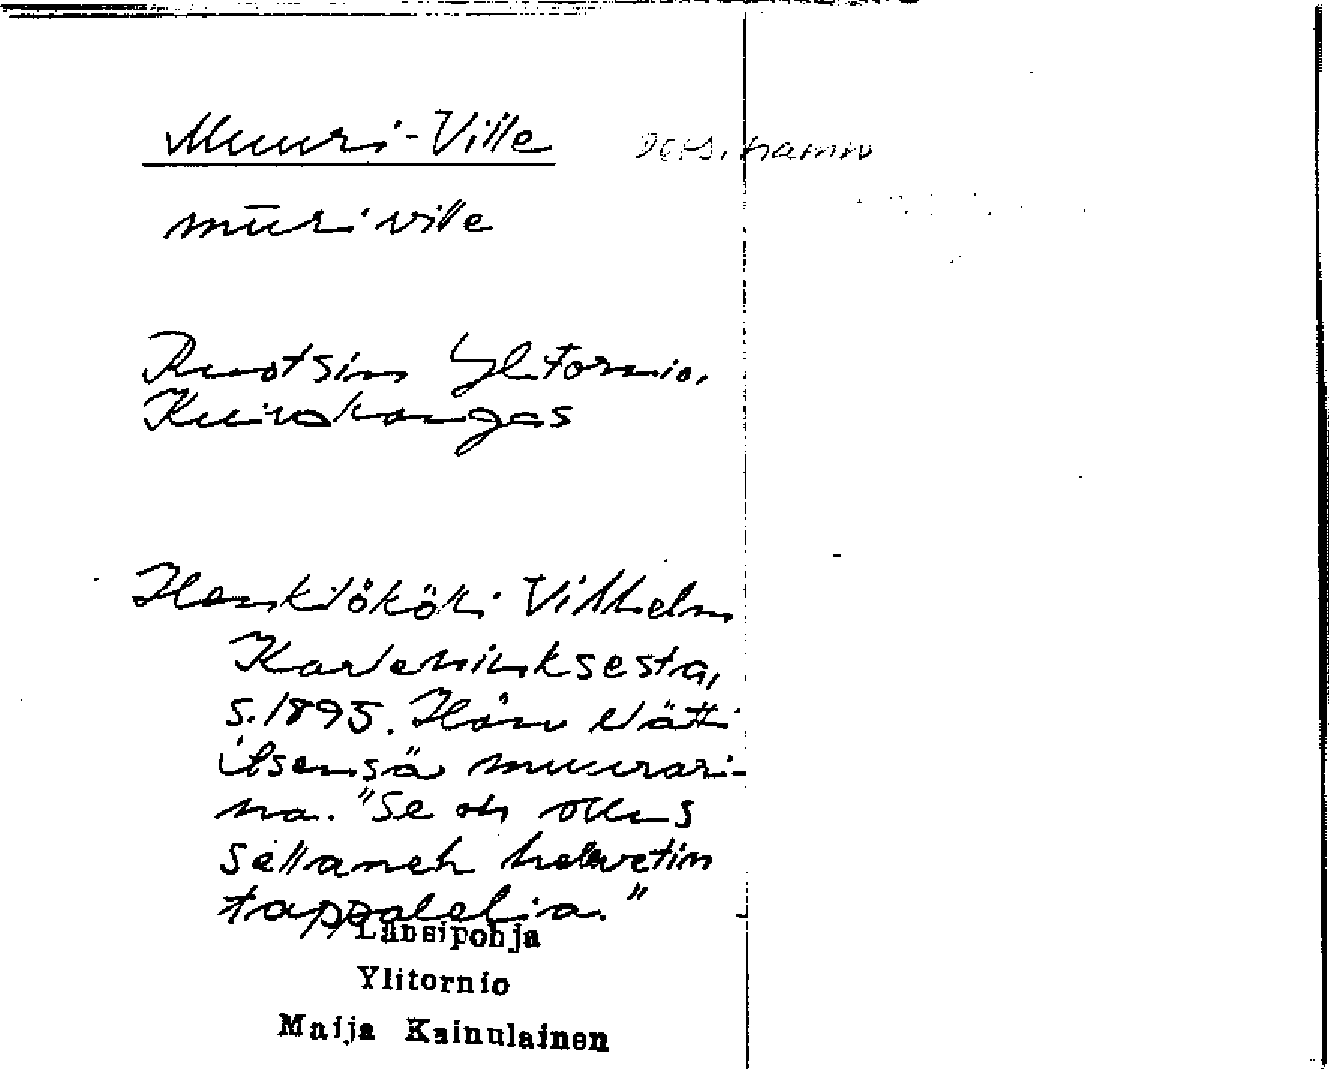 Muuri-Ville pers.namn
mūri ville
Ruotsin Ylitornio,
Kuivakangas
Henkilököli Vilhelm
Karlehinksesta,
s. 1895. Hän elätti
itsensä muurari-
na. "Se oli ollus
sellaneh helvetin
tappalelia."
Länsipohja
Ylitornio
Maija Kainulainen